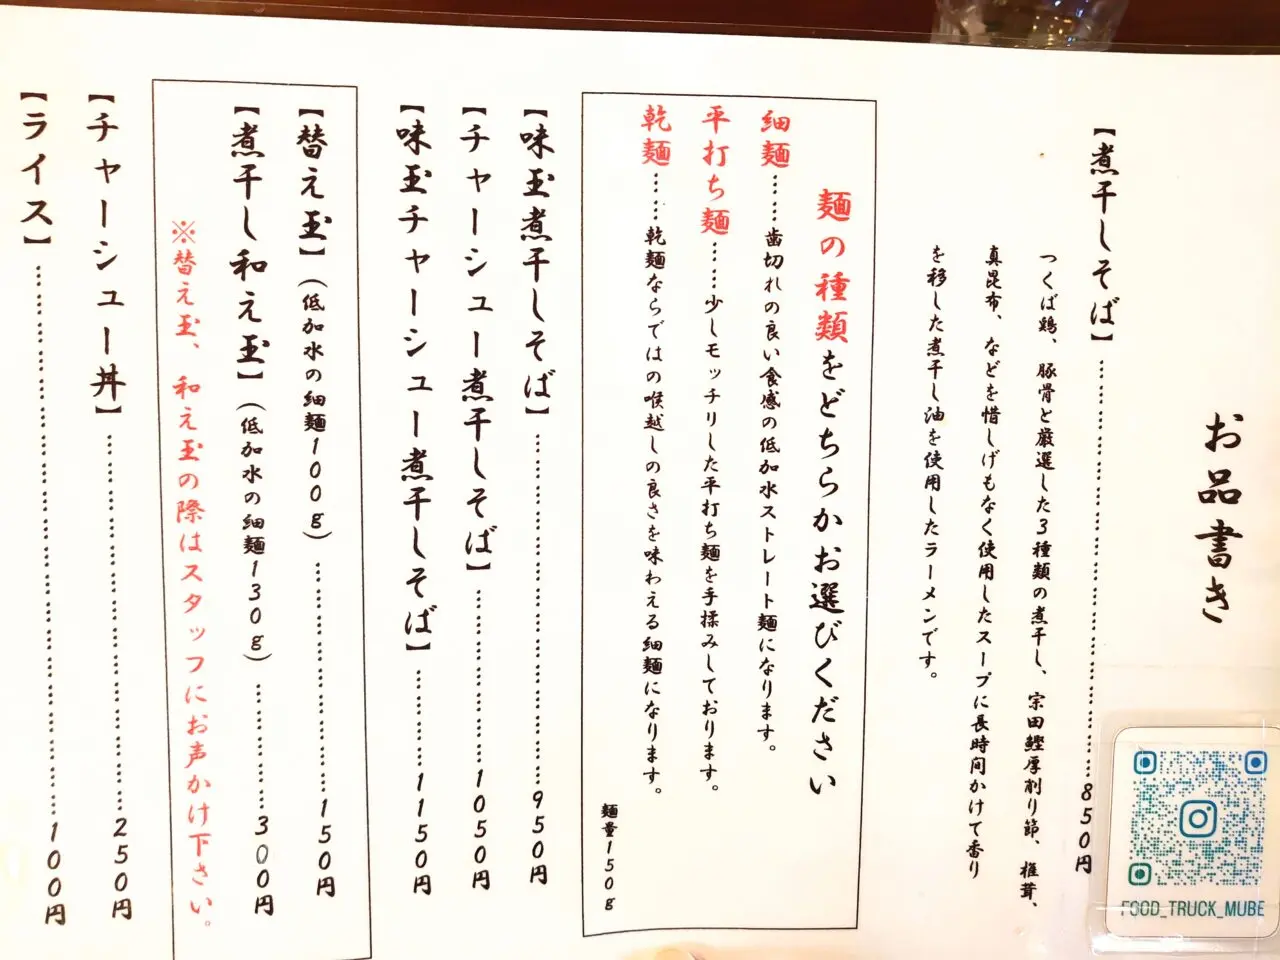 お品書き
【煮干しそば】…………850円
つくば鶏、豚骨と厳選した3種類の煮干し、宗田鰹厚削り節、椎茸、
真昆布、などを惜しげもなく使用したスープに長時間かけて香り
を移した煮干し油を使用したラーメンです。
麺の種類をどちらかお選びください
細麺……歯切れの良い食感の低加水ストレート麺になります。
平打ち麺……少しモッチリした平打ち麺を手揉みしております。
乾麺……乾麺ならではの喉越しの良さを味わえる細麺になります。
麺量150g
【味玉煮干しそば】…………950円
【チャーシュー煮干しそば】…………1050円
【味玉チャーシュー煮干しそば】…………1150円
【替え玉】(低加水の細麺100g)…………150円
【煮干し和え玉】(低加水の細麺130g)…………300円
※替え玉、和え玉の際はスタッフにお声かけ下さい。
【チャーシュー丼】…………250円
【ライス】…………100円
FOOD_TRUCK_MUBE